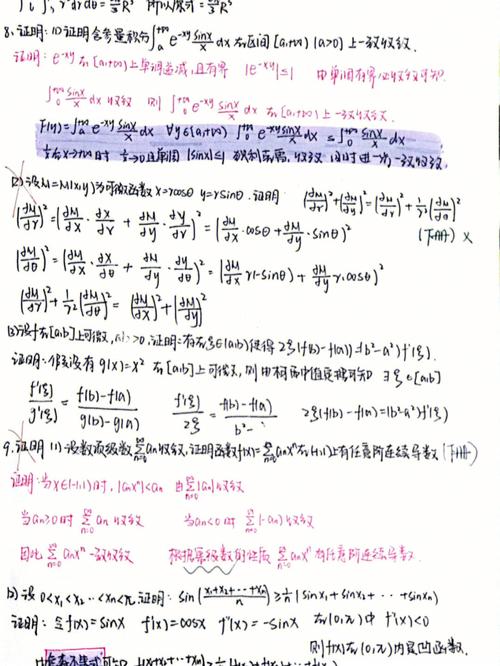 8. 证明: (1) 证明含参量积分∫₀^{+∞} e^{-xy} sinx/x dx 在区间 [a,+∞) (a>0) 上一致收敛.
证明: e^{-xy} 在 [a,+∞) 上单调递减, 且有界 |e^{-xy}|≤1 由单调有界
∫₀^{+∞} sinx/x dx 收敛 则 ∫₀^{+∞} e^{-xy} sinx/x dx 在 [a,+∞) 上一致收敛.
F(y)=∫ₐ^{+∞} e^{-xy} sinx/x dx ∀y∈[a,+∞) ∫₀^{+∞} e^{-xy} sinx/x dx ≤ ∫₀^{+∞} sinx/x dx
1/x 在x→+∞时 1/x→0且单调 |sinx|≤1 收敛 一致收敛.
(2) 设M=M(x,y)为可微函数 x=rcosθ y=rsinθ. 证明 (∂M/∂r)²+(∂M/∂y)²=(∂M/∂r)²+1/r²(∂M/∂θ)²
(∂M/∂r)²=(∂M/∂x·∂x/∂r + ∂M/∂y·∂y/∂r)²=(∂M/∂x·cosθ+∂M/∂y·sinθ)² (下册) ×
(∂M/∂θ)²=(∂M/∂x·∂x/∂θ + ∂M/∂y·∂y/∂θ)²=(∂M/∂x r(-sinθ)+∂M/∂y r·cosθ)²
(∂M/∂r)²+1/r²(∂M/∂θ)²=(∂M/∂x)²+(∂M/∂y)²
(3) 设f在[a,b]上可微, a>0, 证明: 存在ξ∈(a,b)使得 2ξ(f(b)-f(a))=(b²-a²)f'(ξ).
证明: 假设有 g(x)=x² 在[a,b]上可微, 则由柯西中值定理可知 ∃ξ∈[a,b]
f'(ξ)/g'(ξ)=f(b)-f(a)/g(b)-g(a) f'(ξ)/2ξ=f(b)-f(a)/b²- 2ξ(f(b)-f(a))=(b²-a²)f'(ξ)
9. 证明 (1) 设数项级数∑_{n=0}^{∞}aₙ收敛, 证明函数f(x)=∑_{n=0}^{∞}aₙxⁿ在(-1,1)上有任意阶连续导数 (下册)
证明: 当x∈(-1,1)时, |aₙxⁿ|<aₙ 由∑_{n=0}^{∞}|aₙ|收敛
当aₙ≥0时 ∑_{n=0}^{∞}aₙ收敛 当aₙ<0时 ∑_{n=0}^{∞}(-aₙ)收敛
因此∑_{n=0}^{∞}aₙxⁿ一致收敛 根据幂级数的性质 ∑_{n=0}^{∞}aₙxⁿ有任意阶连续导数.
(2) 设 0<x₁<x₂…<xₙ<π, 证明: sin(x₁+x₂+…+xₙ/n)≥1/n(sinx₁+sinx₂+…+sinxₙ)
证明: 令f(x)=sinx f'(x)=cosx f''(x)=-sinx 在(0,π)中 f''(x)<0
则f(x)在(0,π)内是凹函数.